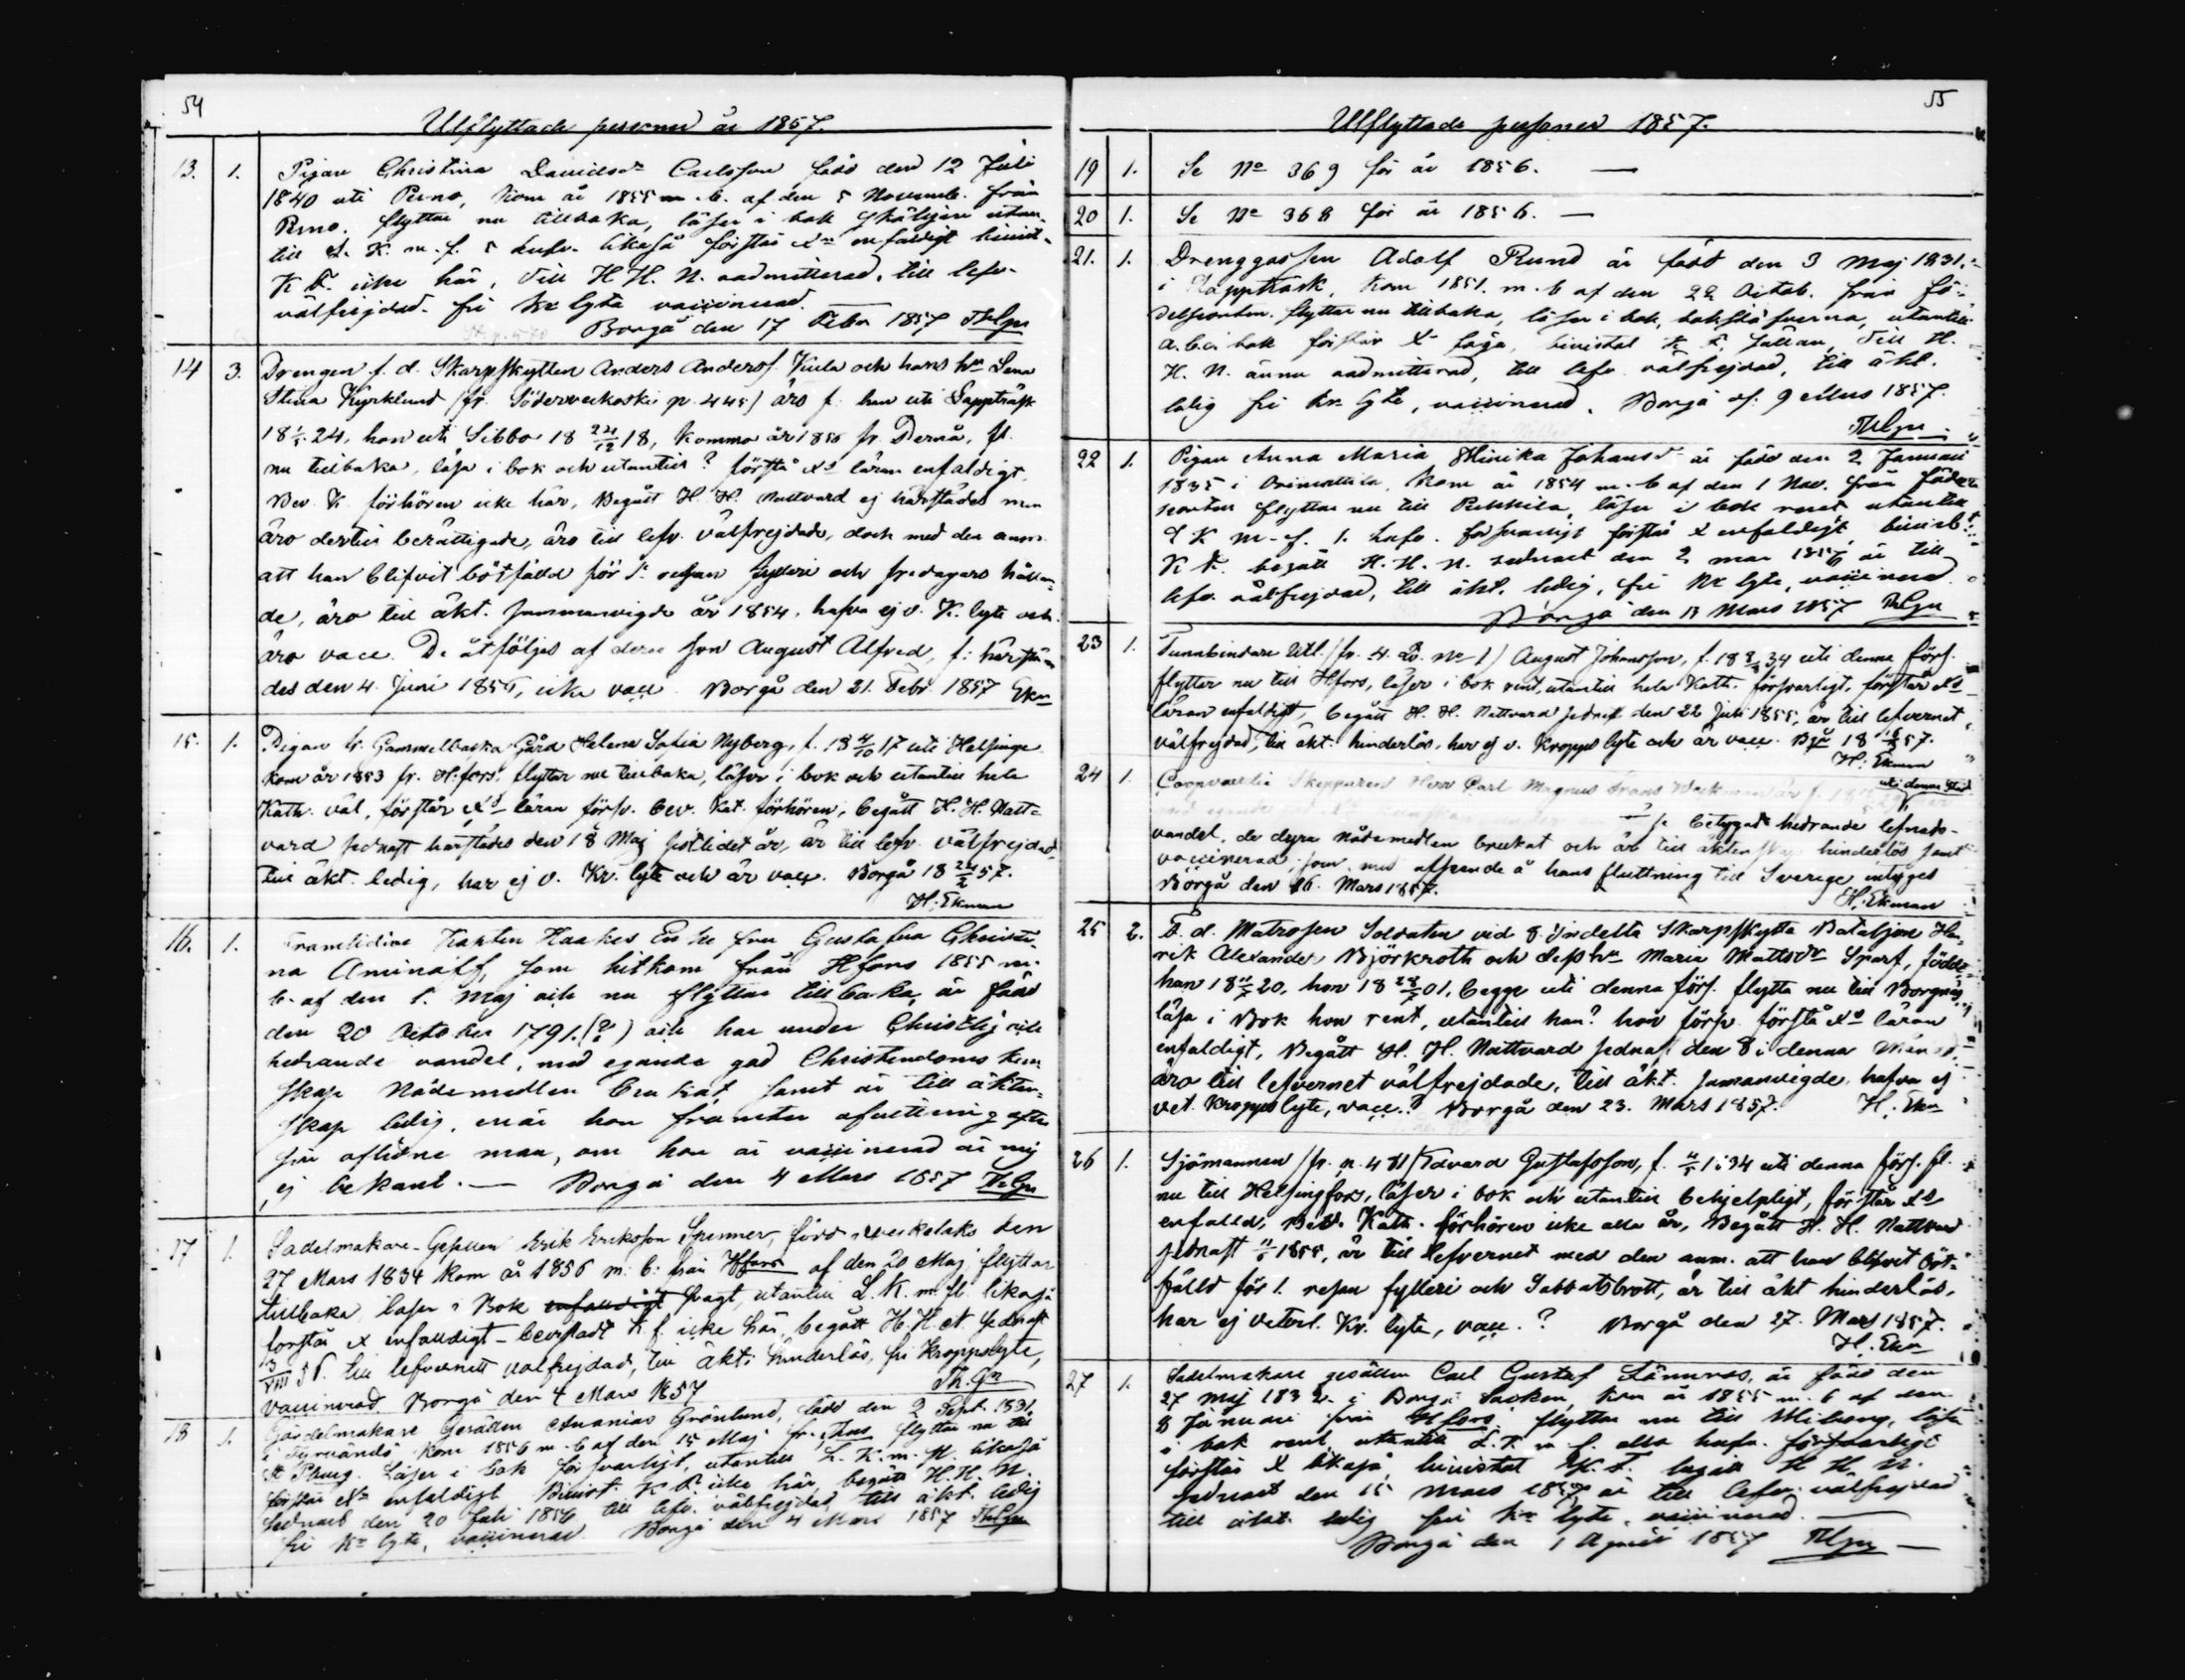 54
Utflyttade personer år 1857.
13. 1. Pigan Christina Davidsdr Carlsson född den 12 Juli
1840 uti Perno, kom år 1855 m. b. af den 5 Novemb. från
Perno. flyttar nu tillbaka, läser i bok utan-
till L. K. m. f. 5 hufv. likaså förstår Xn enfaldigt bivist.
K. F. icke här, till H. H. N. oadmitterad, till lefv.
välfrejdad. fri kr lyte vaccinerad.
Borgå den 17 Febr 1857 ThGn
14 3. Drengen f. d. Skarpskytten Anders Anderss. Kula och hans hu Lena
Stina Kyrklund /fr. Söderveckoski p. 445/ äro f. han uti Lappträsk
18 24, hon uti Sibbo 18 24/12 18, kommo år 1856 fr. Pernå, fl.
nu tillbaka, läsa i bok och utantill? förstå Xs läran enfaldigt,
Bev. K. förhören icke här, Begått H. H. Nattvard ej härstädes men
äro dertill berättigade, äro till lefv. välfrejdade, dock med den anm.
att han blifvit bötfälld för 1. resan fylleri och fredagars hållan-
de, äro till äkt. sammanvigde år 1854, hafva ej v. K. lyte och
äro vacc. De åtföljes af deras son August Alfred, f. härstä-
des den 4. Juni 1856, icke vacc. Borgå den 21. Febr. 1857 Ekn
15. 1. Pigan fr. Gammelbacka Gård Helena Sofia Nyberg, f. 18 4/10 17 uti Helsinge
kom år 1853 fr. H.fors. flyttar nu tillbaka, läser i bok och utantill hela
Kath. väl, förstår Xs läran försv. bev. Kat. förhören, begått H. H. Natt-
vard sednast härstädes den 18 Maj sistlidet år, är till lefv. välfrejdad,
till äkt. ledig, har ej v. Kr. lyte och är vacc. Borgå 18 24/2 57.
H. Ekman
16. 1. Framlidne Kapten Haakes Enke fru Gustafva Christi-
na Aminoff, som hitkom från Hfors 1855 m.
b. af den 1. Maj och nu flyttar tillbaka, är född
den 20 October 1791. (?) och har under Christlig och
hedrande vandel, med egande god Christendoms kun-
skap Nådemedlen brukat samt är till äkten-
skap ledig, när hon framter afvittring efter
sin aflidne man, om hon är vaccinerad är mig
ej bekant. — Borgå den 4 Mars 1857 ThGn
17 1. Sadelmakare-Gesällen Erik Eriksson Spenner, född i Veckelaks den
27 Mars 1834 kom år 1856 m. b. från Hfors af den 20 Maj, flyttar
tillbaka läser i Bok enfaldigt svagt, utantill L. K. m. fl. likaså
förstår X enfaldigt - beristadt K. f. icke här, begått H. H. N. sednast
3/VIII 56. till lefvernett välfrejdad, till äkt. hinderlös, fri kroppslyte,
vaccinerad. Borgå den 4 Mars 1857 Th. Gn
18 1. Gördelmakare Gesällen Ananias Grönlund, född den 2 Sept. 1831
i Tyrvändö kom 1856 m. b. af den 15 Maj fr. flyttar nu till
St Pburg. Läser i bok försvarligt, utantill L. K. m. fl. likaså
förstår Xn enfaldigt Bivist. K. F. icke här, begått H. H. N.
sednast den 20 Juli 1856 till lefv. välfrejdad till äkt. ledig
fri kr lyte, vaccinerad. Borgå den 4 Mars 1857 ThGn
55
Utflyttade personer 1857.
19 1. Se No 369 för år 1856. —
20 1. Se No 368 för år 1856. —
21. 1. Drenggossen Adolf Rund är född den 3 Maj 1831.
i Lappträsk, kom 1851. m. b. af den 22 Octob. från fö-
delseorten. flyttar nu tillbaka, läser i bok, bokstäfverna, utantill
a. b. c. bok förstår X föga, bivistat K. F. sällan, till H.
H. N. ännu oadmitterad, till lefv. välfrejdad, till äkt.
ledig fri kr. lyte, vaccinerad. Borgå af 9 Mars 1857.
ThGn
22 1. Pigan Anna Maria Hinrika Johansdr är född den 2 Januari
1835 i Orimattila, kom år 1854 m. b. af den 1 Nov. från födelse-
orten flyttar nu till Pukkila, läser i bok rent utantill
L K m. f. 1. hufv. försvarligt förstår X enfaldigt, bivist.
K. F. begått H. H. N. sednast den 2 mar 1856 är till
lefv. välfrejdad, till äkt. ledig, fri kr lyte, vaccinerad
Borgå den 13 Mars 1857 ThGn
23 1. Tunnbindare Utl. /fr. 4. Qv. No 1/ August Johansson, f. 18 34 uti denna förs.
flyttar nu till Hfors, läser i bok rent, utantill hela Kath. försvarligt, förstår Xs
läran enfaldigt, begått H. H. Nattvard sednast den 22 Juli 1855, är till lefvernet
välfrejdad, till äkt. hinderlös, har ej v. kroppslyte och är vacc. Bgå 18 57.
H. Ekman
24 1. Coopvaerdie Skepparen Herr Carl Magnus Frans
uti denna Stad
betygadt hedrande lefnads-
vandel, de dyra nådemedlen brukat och är till äktenskap hinderlös samt
vaccinerad; som, med afseende å hans fluttning till Sverige intyges
Borgå den 16. Mars 1857.
H. Ekman
25 2. F. d. Matrosen Soldaten vid 8. Indelta Skarpskytte Bataljon Hen-
rik Alexander Björkroth och dess hu Maria Mattsdr Sparf, födde
han 18 20, hon 18 01, begge uti denna förs. flytta nu till Borgnäs,
läsa i Bok hon rent, utantill han? hon försv. förstå Xs läran
enfaldigt, Begått H. H. Nattvard sednast den 8 i denna Månad,
äro till lefvernet välfrejdade, till äkt. samanvigde, hafva ej
vet. Kroppslyte, vacc.? Borgå den 23. Mars 1857. H. Ekn
26 1. Sjömannen /fr. p. 481/ Edvard Gustafsson, f. 1834 uti denna förs. fl.
nu till Helsingfors, läser i bok och utantill behjelpligt, förstår Xs
enfaldt, Bev. Kath. förhören icke alla år, Begått H. H. Nattvard
sednast 1855, är till lefvernet med den anm. att han blifvit böt-
fälld för 1. resan fylleri och Sabbatsbrott, är till äkt hinderlös,
har ej veterl. Kr. lyte, vacc.? Borgå den 27. Mars 1857.
H. Ekn
27 1. Sadelmakare gesällen Carl Gustaf Lännros, är född den
27 Maj 1832 i Borgå Socken, kom år 1855 m. b. af den
8 Januari från Hfors flyttar nu till Wiborg, läser
i bok rent utantill L. K. m. f. alla hufv. försvarligt
förstår X likaså, bivistat K. F. begått H H N.
sednast den 15 Mars 1857 är till lefv. välfrejdad
till äkt. ledig fri kr lyte, vaccinerad. —
Borgå den 1 April 1857 ThGn —